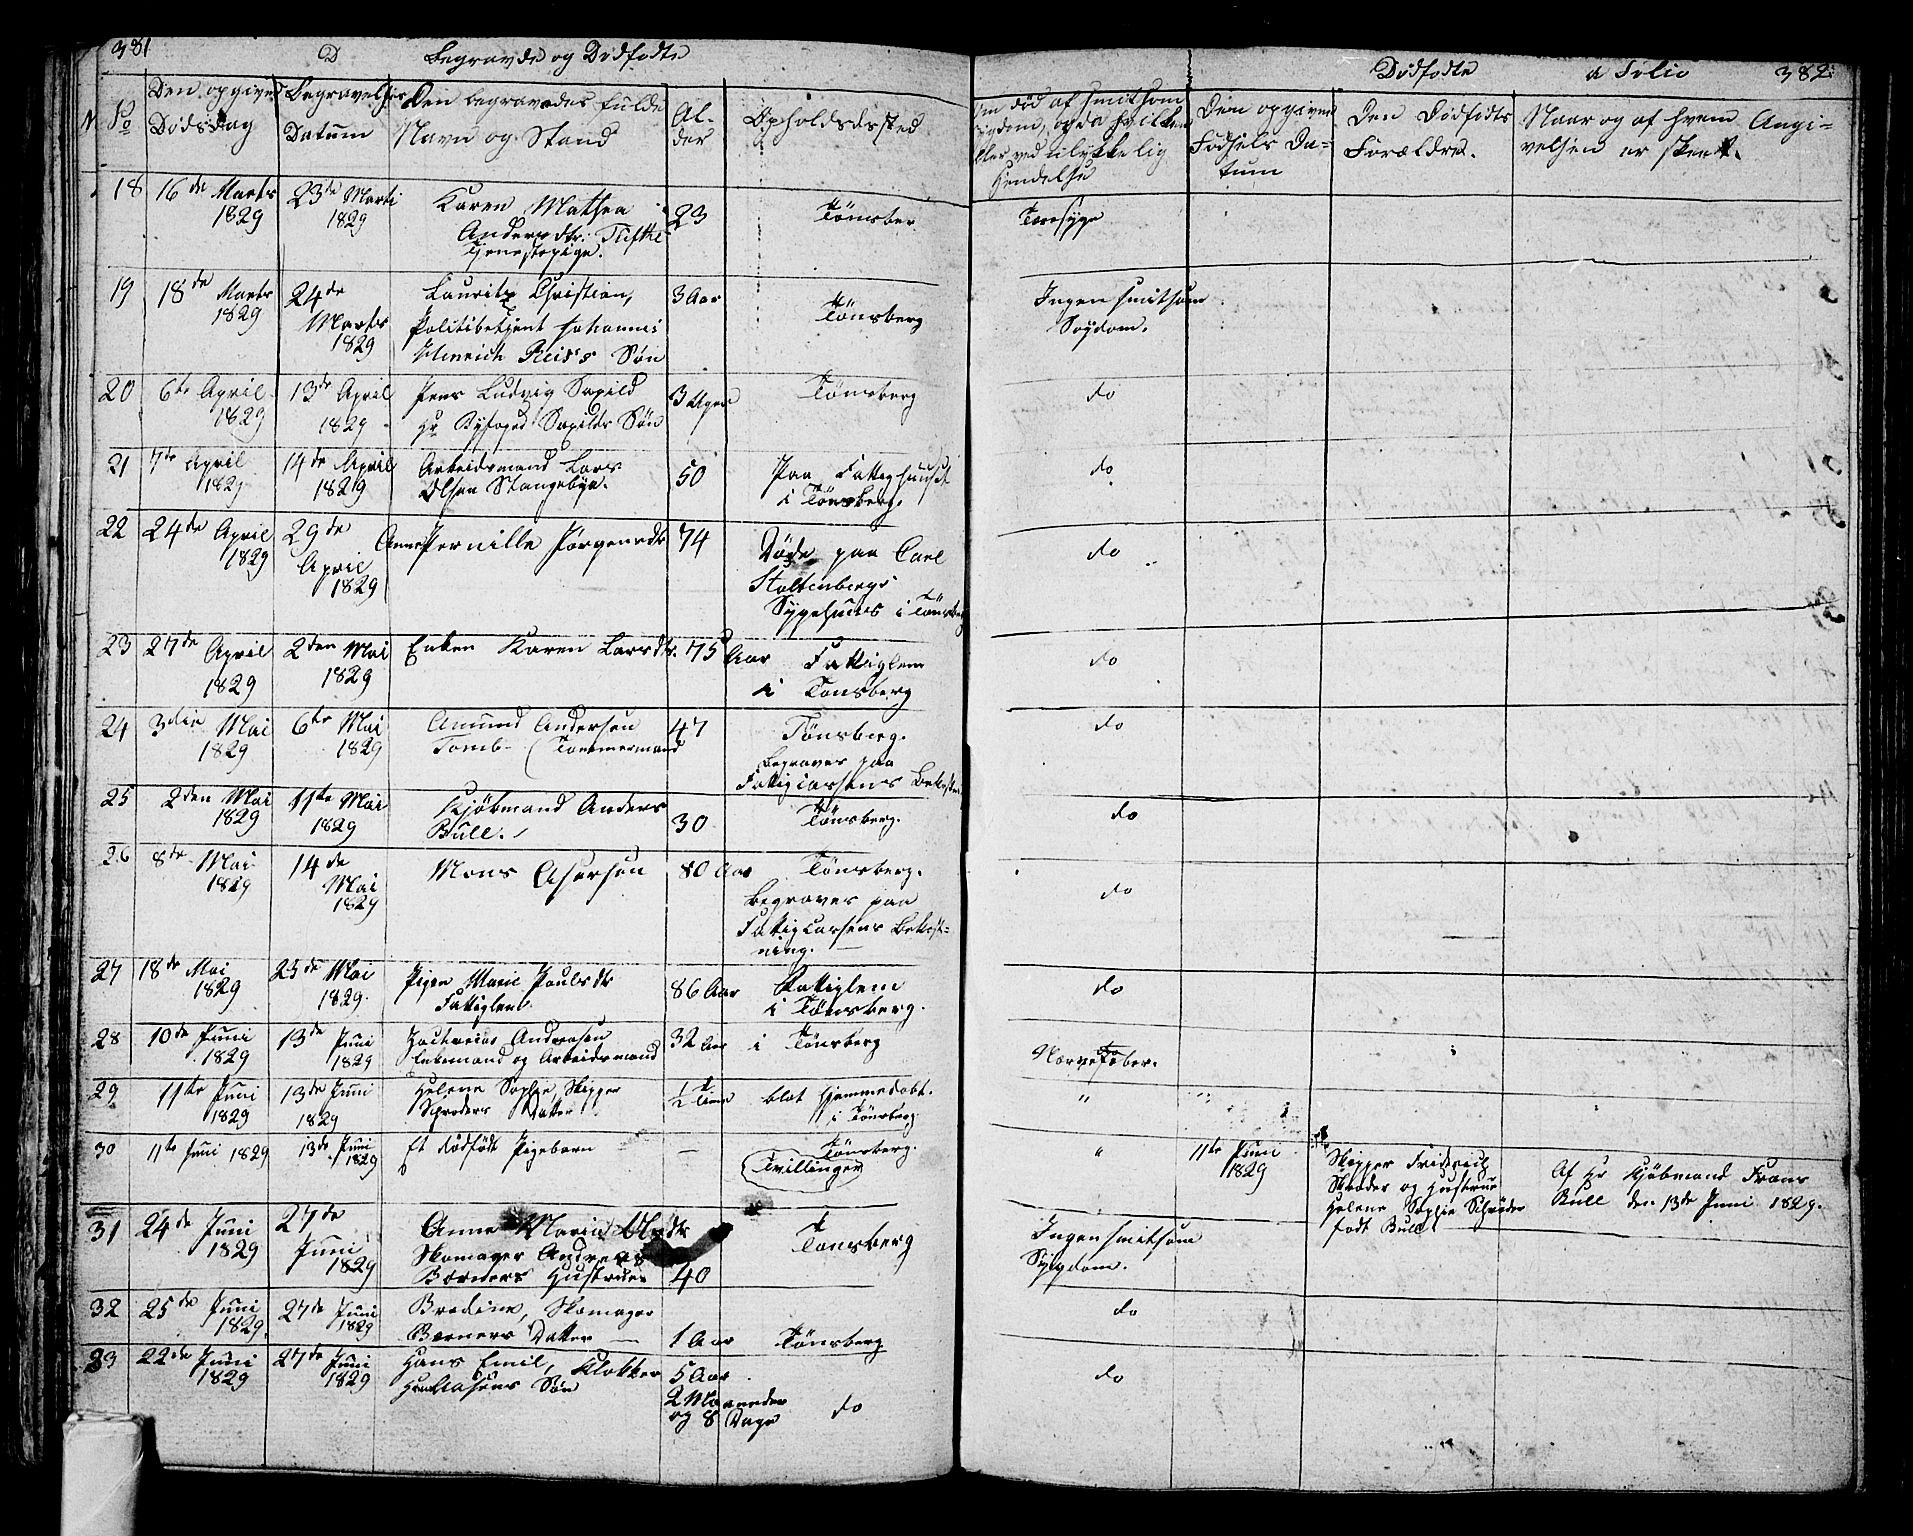 381
D Begravde og Dødfødte
Dødfødte a Folio 382.
No
Den opgivne Dødsdag
Begravelses Datum
Den begravedes fulde Navn og Stand
Alder
Opholdssted
Om død af smitsom Sygdom, og da hvilken eller ved ulykkelig Hendelse
Den opgivne Fødsels Datum
Den Dødfødts Forældre.
Naar og af hvem Angivelsen er skeet.
18 16de Marts 1829 23de Marti 1829
Karen Mathea
Andersdtr: Tufthe
Tjenestepige.
23 Tønsber Tæresyge
19 18de Marts 1829 24de Marts 1829
Lauritz Christian,
Politibetjent Johannes
Hinrich Reiss Søn
3 Aar Tønsberg Ingen smitsom Sygdom.
20 6te April 1829 13de April 1829
Jens Ludvig Saxild
Hr Byfoged Saxilds Søn
3 Uger Tønsberg do
21 7de April 1829 14de April 1829
Arbeidsmand Lars
Olsen Stangebye.
50 Paa Fattighuuset
i Tønsberg. do
22 24de April 1829 29de April 1829
Anne Pernille Jørgensdtr 74
Døde paa Carl
Stoltenbergs
Sygehuus i Tønsberg do
23 27de April 1829 2den Mai 1829
Enken Karen Larsdtr. 75 Aar
Fattiglem
i Tønsberg do
24 3die Mai 1829 6te Mai 1829
Amund Andersen
Tomb- Tømmermand
47 Tønsberg.
begraves paa
Fattigcassens Bekostn do
25 2den Mai 1829 11te Mai 1829
Kjøbmand Anders
Bull.
30 Tønsberg. do
26 8de Mai 1829 14de Mai 1829
Mons Asersen 80 Aar
Tønsberg.
Begraves paa
Fattigcassens Bekost-
ning. do
27 18de Mai 1829 23de Mai 1829
Pigen Marie Poulsdtr
Fattiglem.
86 Aar Fattiglem
i Tønsberg. do
28 10de Juni 1829 13de Juni 1829
Zacharias Andersen
Enkemand og Arbeidsmand
32 Aar i Tønsberg Nervefeber.
29 11te Juni 1829 13de Juni 1829
Helene Sophie, Skipper
Schrøders Datter
1/2 Time blot hjemmedøbt.
i Tønsberg "
30 11te Juni 1829 13de Juni 1829
Et dødfødt Pigebarn
— Tønsberg.
(Tvillinger)
" 11te Juni 1829
Skipper Fridrich
Skrøder og Hustrue
Helene Sophie Schrøder
født Bull
Af Hr Kjøbmand Frans
Bull den 13de Juni 1829.
31 24de Juni 1829 27de Juni 1829
Anne Maria
Skomager Andreas
Berners Hustrue
40 Tønsberg Ingen smitsom
Sygdom.
32 25de Juni 1829 27de Juni 1829
Bredine, Skomager
Berners Datter —
1 Aar Tønsberg do
23 22de Juni 1829 27de Juni 1829
Hans Emil, Klokker
Søn
5 Aar
2 Maaneder
og 8 Dage do do